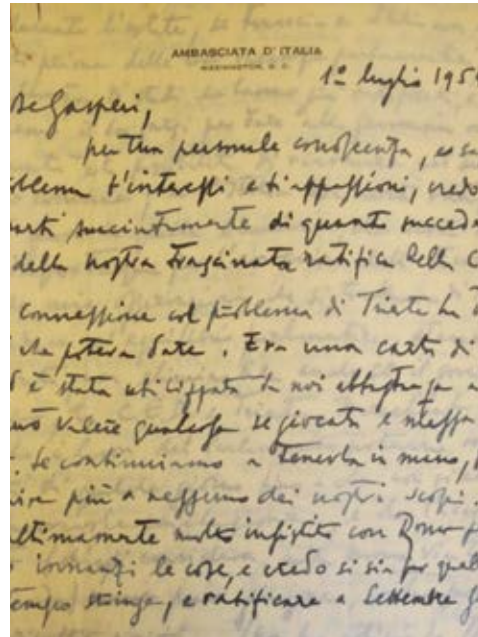 AMBASCIATA D'ITALIA
WASHINGTON, D. C.
1º luglio 195
De Gasperi,
per tua personale conoscenza, e
blema t'interessi e ti appassioni, credo
arti succintamente di quanto succeda
della nostra trascinata ratifica della C
connessione col problema di Trieste ha
che poteva dare. Era una carta di
è stata utilizzata da noi abbastanza
può valere qualcosa se giocata e messa
. Se continuiamo a tenerla in mano,
più a nessuno dei nostri scopi.
ltimamente molto insistito con Roma
innanzi le cose, e credo si sia per
tempo stringe, e ratificare a Settembre